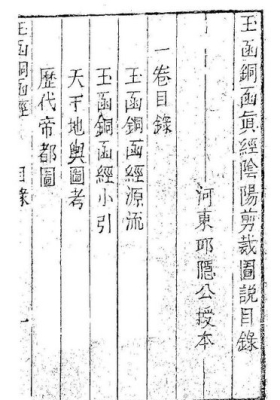 玉函銅函眞經陰陽剪裁圖説目錄
河東邱隱公授本
一卷目錄
玉函銅函經源流
玉函銅函經小引
天下地輿圖考
歷代帝都圖
玉函銅函經 目錄 一